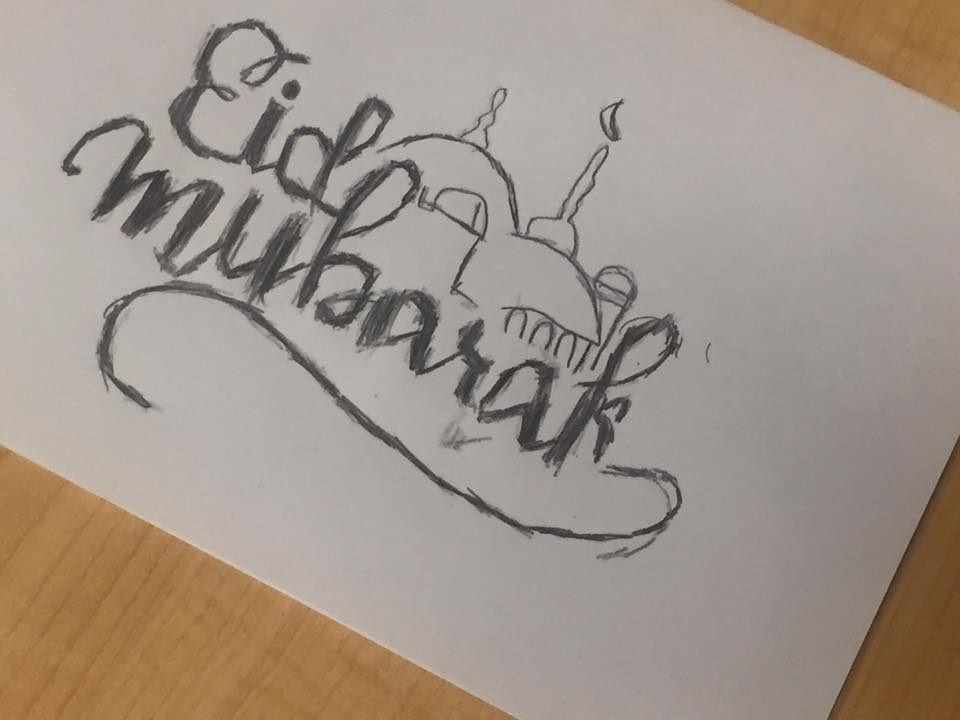 Eid
mubarak